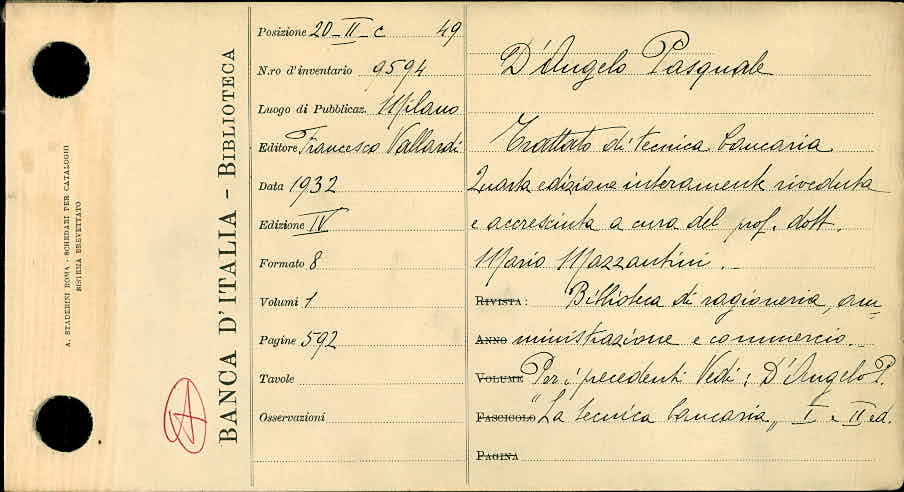 A. STADERINI ROMA - SCHEDARI PER CATALOGHI
SISTEMA BREVETTATO
BANCA D'ITALIA - BIBLIOTECA
Posizione 20-II-C 49
N.ro d'inventario 9594
Luogo di Pubblicaz. Milano
Editore Francesco Vallardi
Data 1932
Edizione IV
Formato 8
Volumi 1
Pagine 592
Tavole
Osservazioni
D'Angelo Pasquale
Trattato di tecnica bancaria
Quarta edizione interamente riveduta
e accresciuta a cura del prof. dott.
Mario Mazzantini.
RIVISTA: Biblioteca di ragioneria, am-
ANNO ministrazione e commercio.
VOLUME Per i precedenti Vedi: D'Angelo P.
FASCICOLO "La tecnica bancaria" I e II ed.
PAGINA